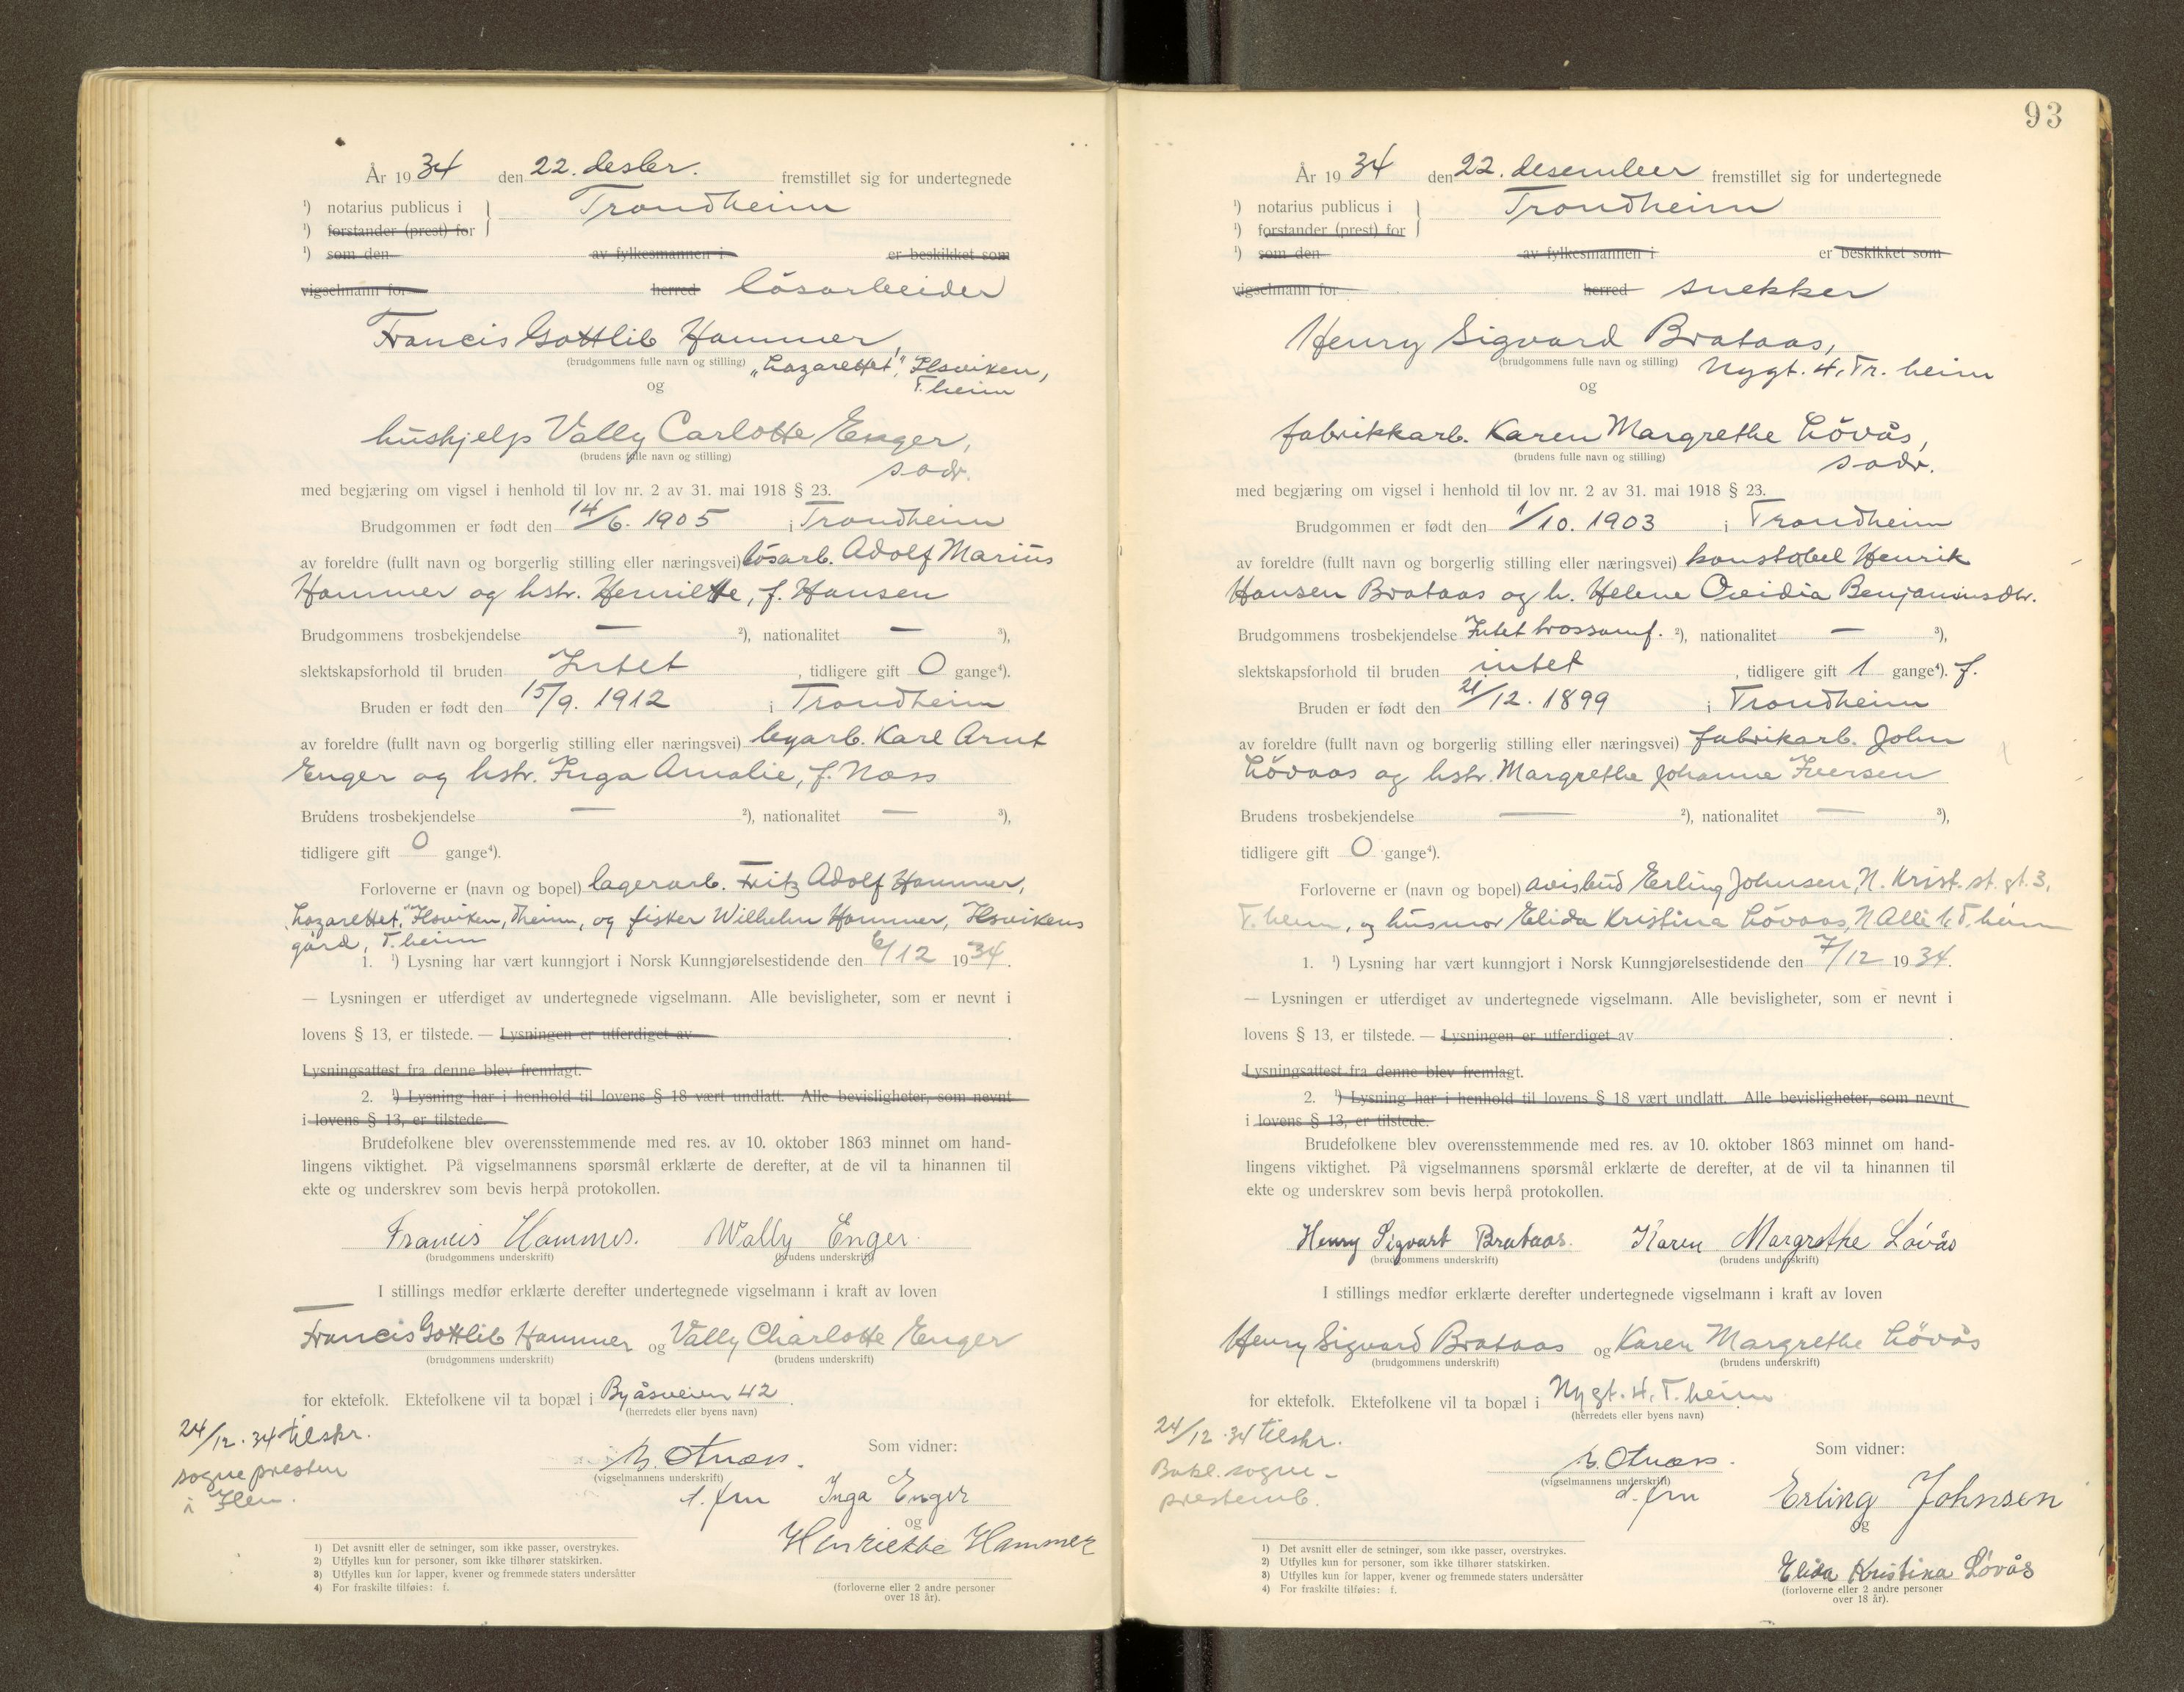 År 1934 den 22. desbr. fremstillet sig for undertegnede
¹) notarius publicus i Trondheim
¹) forstander (prest) for
¹) som den av fylkesmannen i er beskikket som
vigselmann for herred løsarbeider
Francis Gottlib Hammer,
(brudgommens fulle navn og stilling) "Lazarettet", Ilsviken,
T.heim
og
hushjelp Vally Carlotte Enger,
(brudens fulle navn og stilling)
s adr.
med begjæring om vigsel i henhold til lov nr. 2 av 31. mai 1918 § 23.
Brudgommen er født den 14/6. 1905 i Trondheim
av foreldre (fullt navn og borgerlig stilling eller næringsvei) løsarb. Adolf Marius
Hammer og hstr. Henriette, f. Hansen
Brudgommens trosbekjendelse — ²), nationalitet — ³),
slektskapsforhold til bruden Intet, tidligere gift 0 gange⁴).
Bruden er født den 15/9. 1912 i Trondheim
av foreldre (fullt navn og borgerlig stilling eller næringsvei) byarb. Karl Arnt
Enger og hstr. Inga Amalie, f. Næss
Brudens trosbekjendelse — ²), nationalitet — ³),
tidligere gift 0 gange⁴).
Forloverne er (navn og bopel) lagerarb. Fritz Adolf Hammer,
"Lazarettet", Ilsviken, Theim, og fisker Wilhelm Hammer, Ilsvikens
gård, T.heim
1. ¹) Lysning har vært kunngjort i Norsk Kunngjørelsestidende den 6/12 1934.
— Lysningen er utferdiget av undertegnede vigselmann. Alle bevisligheter, som er nevnt i
lovens § 13, er tilstede. — Lysningen er utferdiget av .
Lysningsattest fra denne blev fremlagt.
2. ¹) Lysning har i henhold til lovens § 18 vært undlatt. Alle bevisligheter, som nevnt
i lovens § 13, er tilstede.
Brudefolkene blev overensstemmende med res. av 10. oktober 1863 minnet om hand-
lingens viktighet. På vigselmannens spørsmål erklærte de derefter, at de vil ta hinannen til
ekte og underskrev som bevis herpå protokollen.
Francis Hammer. Wally Enger.
(brudgommens underskrift) (brudens underskrift)
I stillings medfør erklærte derefter undertegnede vigselmann i kraft av loven
Francis Gottlib Hammer og Vally Charlotte Enger
(brudgommens underskrift) (brudens underskrift)
for ektefolk. Ektefolkene vil ta bopæl i Byåsveien 42.
(herredets eller byens navn)
24/12. 34 tilskr.
sogne presten
i Ilen.
Som vidner:
(vigselmannens underskrift)
Inga Enger
og
Henriette Hammer
(forloverne eller 2 andre personer
over 18 år).
1) Det avsnitt eller de setninger, som ikke passer, overstrykes.
2) Utfylles kun for personer, som ikke tilhører statskirken.
3) Utfylles kun for lapper, kvener og fremmede staters undersåtter
4) For fraskilte tilføies: f.
93
År 1934 den 22. desember fremstillet sig for undertegnede
¹) notarius publicus i Trondheim
¹) forstander (prest) for
¹) som den av fylkesmannen i er beskikket som
vigselmann for herred snekker
Henry Sigvard Brataas,
(brudgommens fulle navn og stilling) Nygt. 4, Tr.heim
og
fabrikkarb. Karen Margrethe Løvås,
(brudens fulle navn og stilling)
s adr.
med begjæring om vigsel i henhold til lov nr. 2 av 31. mai 1918 § 23.
Brudgommen er født den 1/10. 1903 i Trondheim
av foreldre (fullt navn og borgerlig stilling eller næringsvei) konstabel Henrik
Hansen Brataas og h. Helene Ovidia Benjaminsdtr.
Brudgommens trosbekjendelse Intet trossamf. ²), nationalitet — ³),
slektskapsforhold til bruden intet, tidligere gift 1 gange⁴). f.
Bruden er født den 21/12. 1899 i Trondheim
av foreldre (fullt navn og borgerlig stilling eller næringsvei) fabrikarb. John
Løvaas og hstr. Margrethe Johanne Iversen
Brudens trosbekjendelse — ²), nationalitet — ³),
tidligere gift 0 gange⁴).
Forloverne er (navn og bopel) avisbud Erling Johnsen, N. Krist. st. gt. 3,
T.heim, og husmor Elida Kristina Løvaas, N Allé T.heim
1. ¹) Lysning har vært kunngjort i Norsk Kunngjørelsestidende den 7/12 1934.
— Lysningen er utferdiget av undertegnede vigselmann. Alle bevisligheter, som er nevnt i
lovens § 13, er tilstede. — Lysningen er utferdiget av .
Lysningsattest fra denne blev fremlagt.
2. ¹) Lysning har i henhold til lovens § 18 vært undlatt. Alle bevisligheter, som nevnt
i lovens § 13, er tilstede.
Brudefolkene blev overensstemmende med res. av 10. oktober 1863 minnet om hand-
lingens viktighet. På vigselmannens spørsmål erklærte de derefter, at de vil ta hinannen til
ekte og underskrev som bevis herpå protokollen.
Henry Sigvart Brataas. Karen Margrethe Løvås
(brudgommens underskrift) (brudens underskrift)
I stillings medfør erklærte derefter undertegnede vigselmann i kraft av loven
Henry Sigvard Brataas og Karen Margrethe Løvås
(brudgommens underskrift) (brudens underskrift)
for ektefolk. Ektefolkene vil ta bopæl i Nygt. 4, T.heim.
(herredets eller byens navn)
24/12. 34 tilskr.
Bakl. sogne-
prestemb.
Som vidner:
(vigselmannens underskrift)
Erling Johnsen
og
Elida Kristina Løvås
(forloverne eller 2 andre personer
over 18 år).
1) Det avsnitt eller de setninger, som ikke passer, overstrykes.
2) Utfylles kun for personer, som ikke tilhører statskirken.
3) Utfylles kun for lapper, kvener og fremmede staters undersåtter
4) For fraskilte tilføies: f.